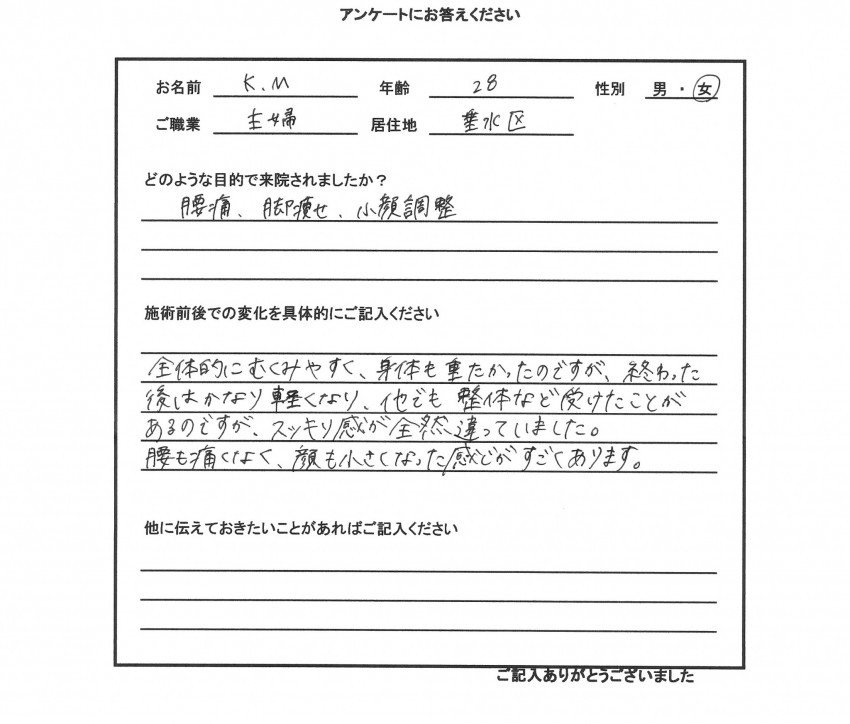 アンケートにお答えください
お名前 K.M 年齢 28 性別 男・女
ご職業 主婦 居住地 垂水区
どのような目的で来院されましたか？
腰痛、脚痩せ、小顔調整
施術前後での変化を具体的にご記入ください
全体的にむくみやすく、身体も重たかったのですが、終わった
後はかなり軽くなり、他でも整体など受けたことが
あるのですが、スッキリ感が全然違っていました。
腰も痛くなく、顔も小さくなった感じがすごくあります。
他に伝えておきたいことがあればご記入ください
ご記入ありがとうございました